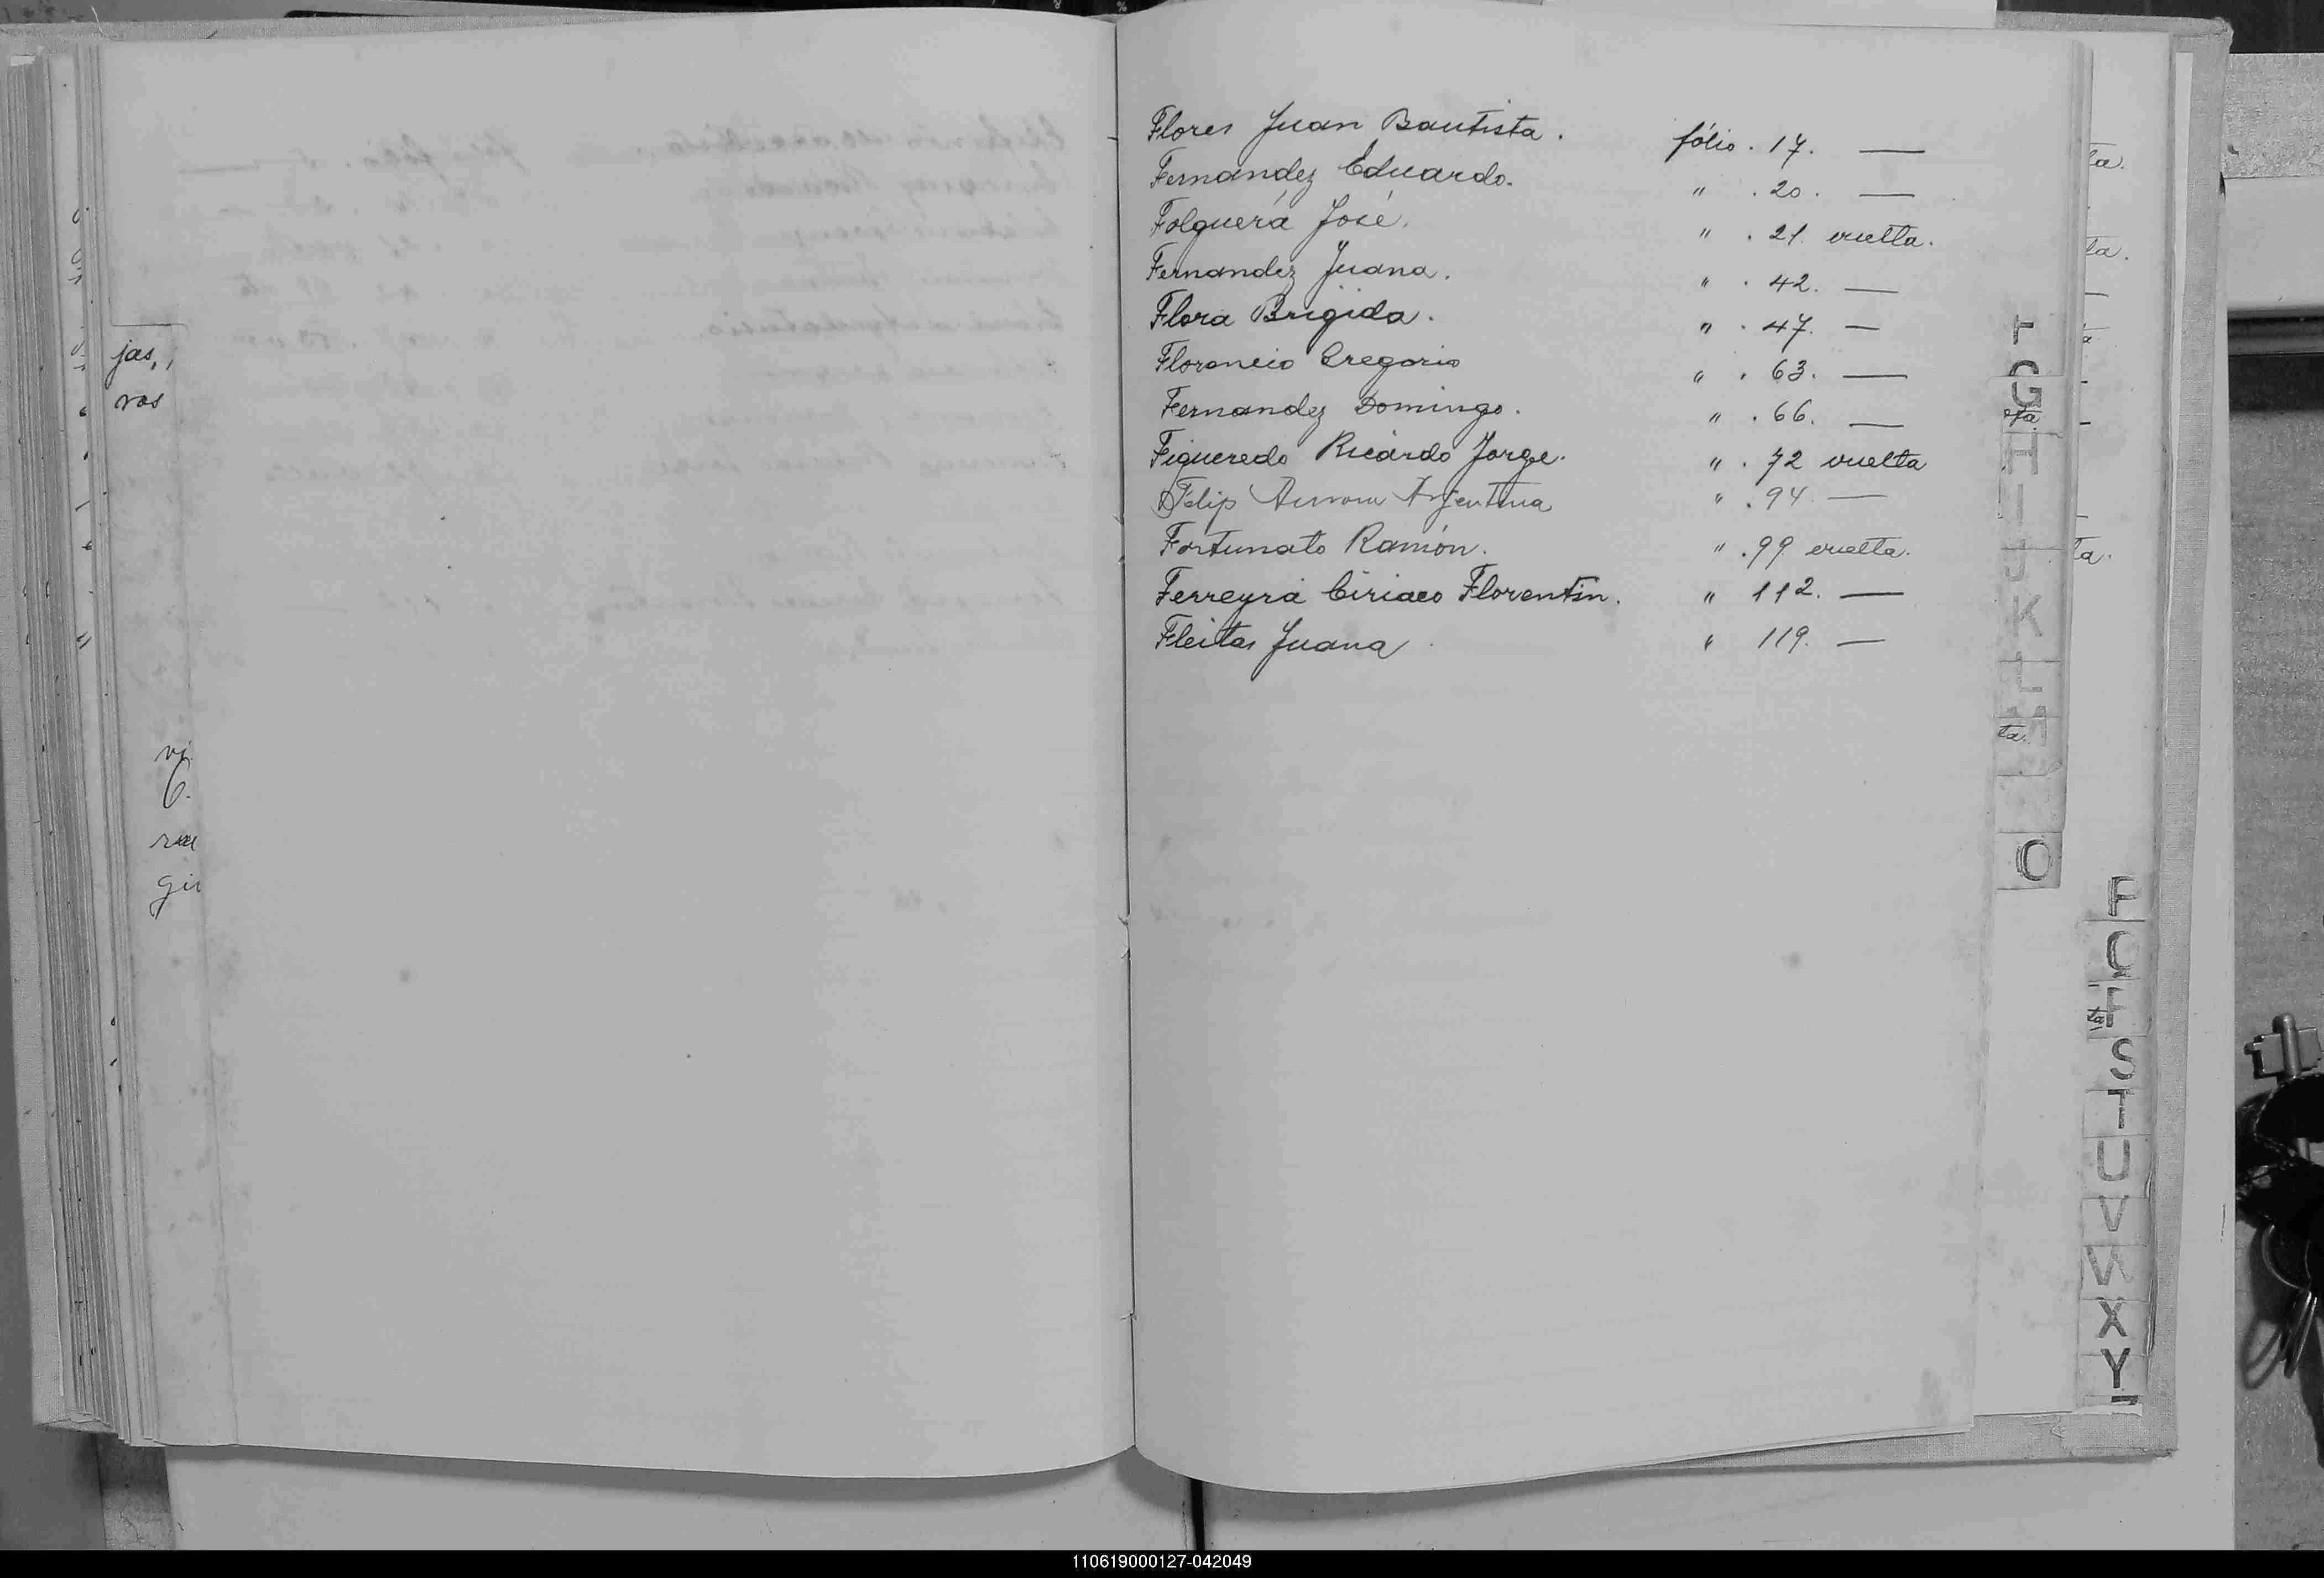 Flores Juan Bautista. fólio. 17. —
Fernandez Eduardo. " . 20. —
Folguerá José. " . 21. vuelta.
Fernandez Juana. " . 42. —
Flora Brígida. " . 47. —
Florencio Gregorio " . 63. —
Fernandez Domingo. " . 66. —
Figueredo Ricardo Jorge. " . 72 vuelta
Felip Aurora Argentina " . 94. —
Fortunato Ramón. " . 99 vuelta.
Ferreyra Ciriaco Florentin. " 112. —
Fleitas Juana " 119. —
jas,
ros
vi
6.
gi
ta.
ta.
ta.
ta.
G
H
I
J
K
L
M
O
S
T
U
V
W
X
Y
110619000127-042049